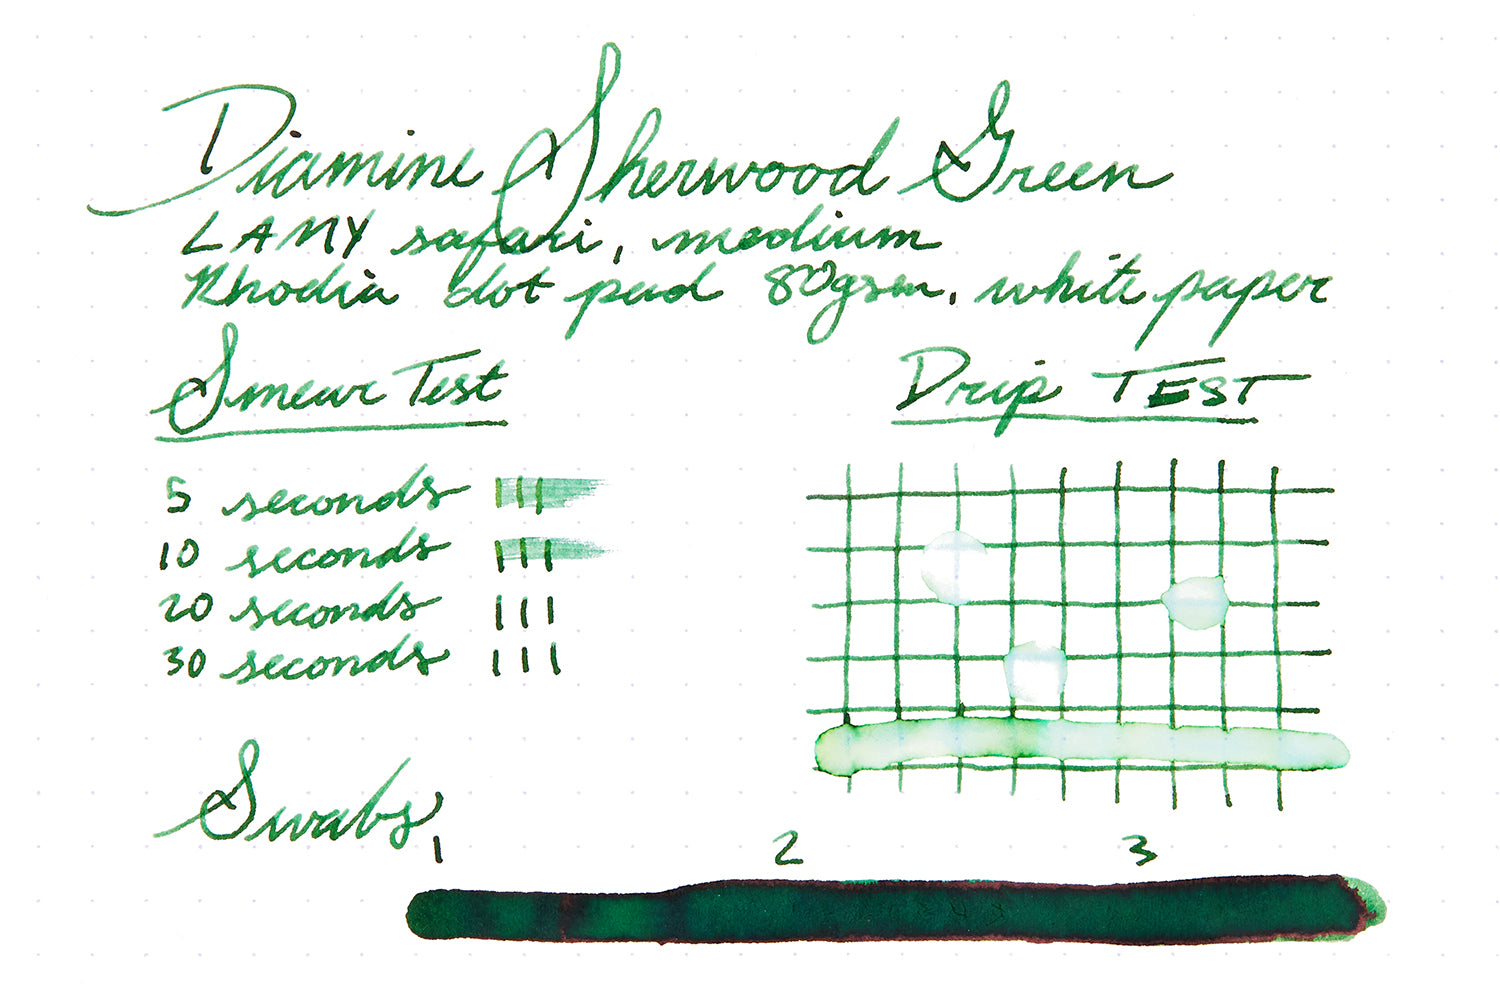 Diamine Sherwood Green
LAMY safari, medium
Rhodia dot pad 80gsm, white paper
Smear Test
Drip TEST
5 seconds
10 seconds
20 seconds
30 seconds
Swabs
1 2 3